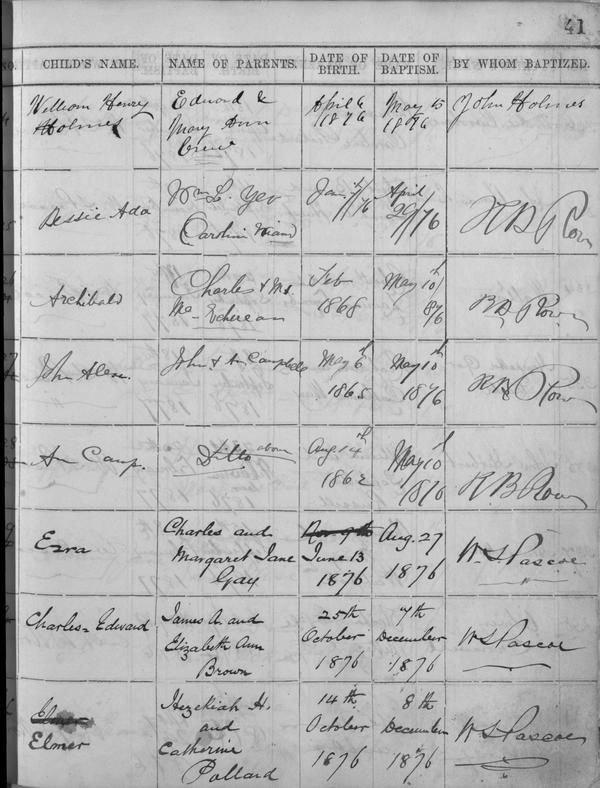 41
NO. CHILD'S NAME. NAME OF PARENTS. DATE OF BIRTH. DATE OF BAPTISM. BY WHOM BAPTIZED.
William Henry Edward & April 6 May 15 John Holmes
Holmes Mary Ann 1876 1876
Crew
Bessie Ada Wm L. Yeo Jan /76 April
Caroline 29/76
Archibald Charles & Feb May 10th
1868 1876
John Alexr. John & An Campbell May 6th May 10th
1865 1876
An Camp. Ditto above Aug. 14th May 10th
1862 1876
Ezra Charles and Nov 9th Aug. 27 W. S. Pascoe
Margaret Jane June 13 1876
Gay 1876
Charles Edward James A. and 25th 7th W S Pascoe
Elizabeth Ann October December
Brown 1876 1876
Elmer Hezekiah H. 14th 8th W S Pascoe
Elmer and October December
Catherine 1876 1876
Pollard